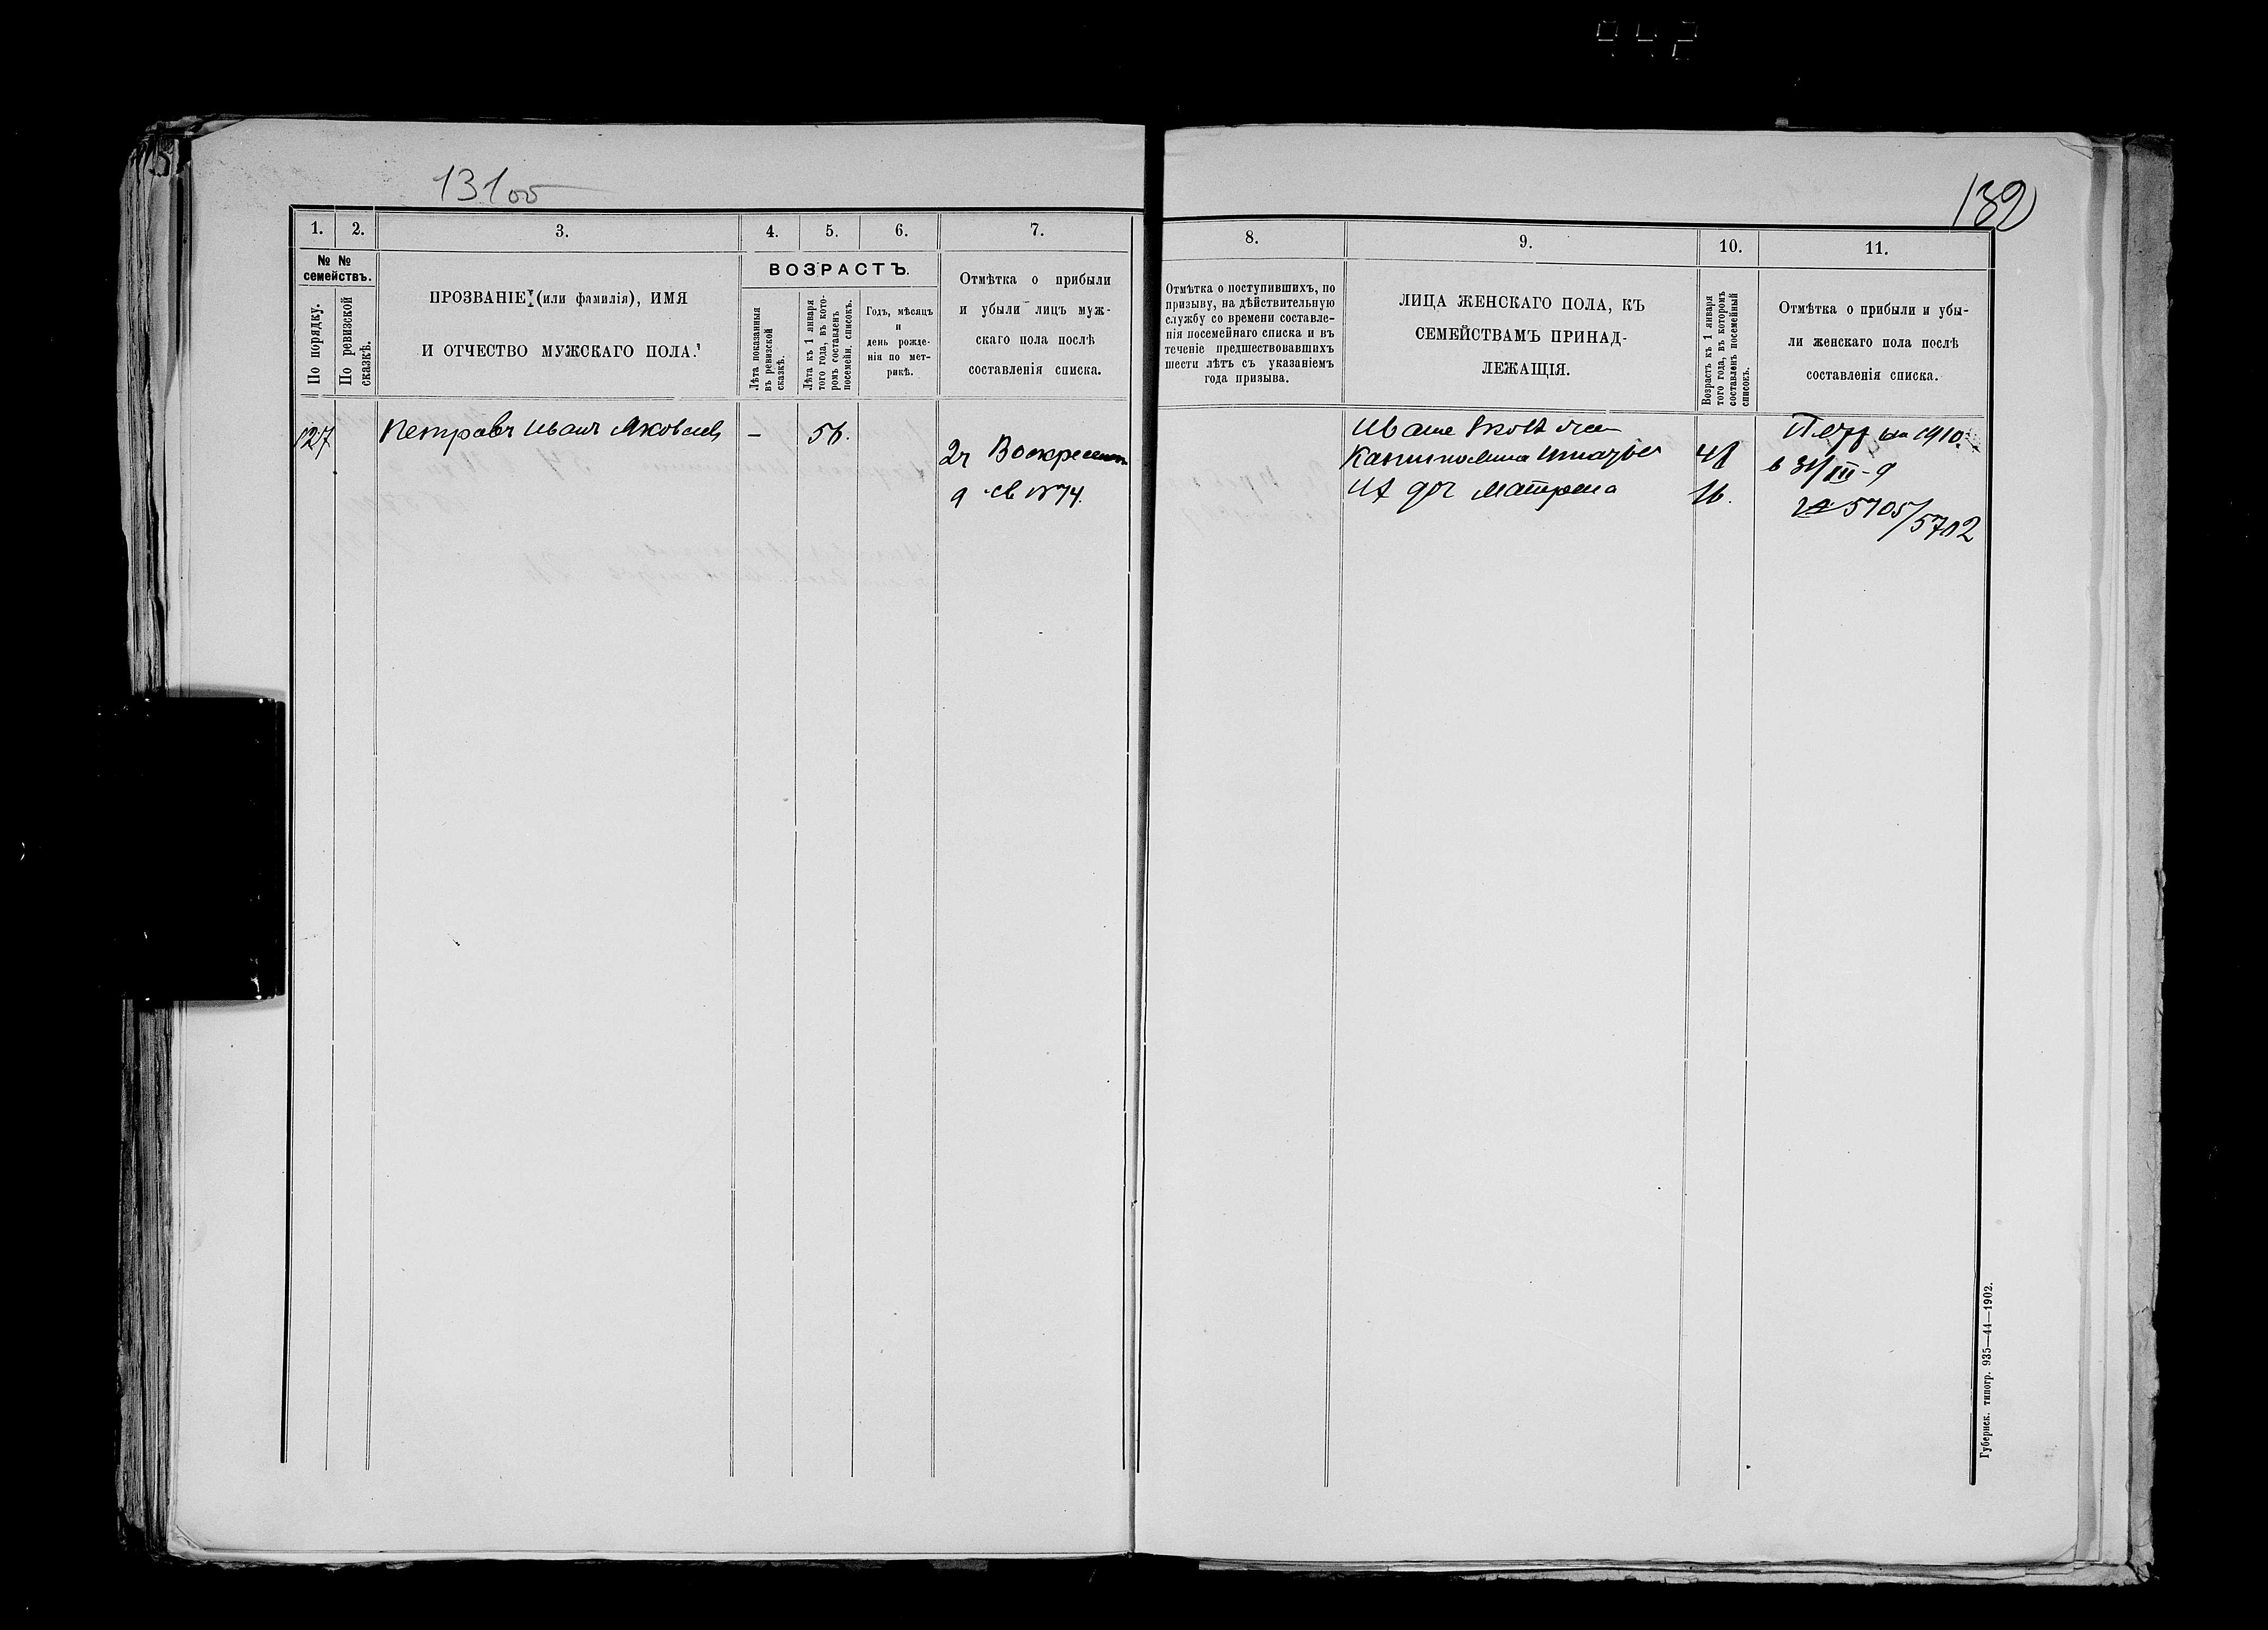 942
131об
1. 2. 3. 4. 5. 6. 7.
№ №
семействъ.
По порядку.
По ревизской
сказкѣ.
ПРОЗВАНІЕ (или фамилія), ИМЯ
И ОТЧЕСТВО МУЖСКАГО ПОЛА.
ВОЗРАСТЪ.
Лѣта показанныя
въ ревизской
сказкѣ.
Лѣта къ 1 января
того года, въ кото-
ромъ составленъ
посемейн. списокъ.
Годъ, мѣсяцъ
и
день рожде-
нія по мет-
рикѣ.
Отмѣтка о прибыли
и убыли лицъ муж-
скаго пола послѣ
составленія списка.
127 Петровъ Иванъ Яковлевъ — 56.
2ч Воскресенск
9 св №74.
132
8. 9. 10. 11.
Отмѣтка о поступившихъ, по
призыву, на дѣйствительную
службу со времени составле-
нія посемейнаго списка и въ
теченіе предшествовавшихъ
шести лѣтъ съ указаніемъ
года призыва.
ЛИЦА ЖЕНСКАГО ПОЛА, КЪ
СЕМЕЙСТВАМЪ ПРИНАД-
ЛЕЖАЩІЯ.
Возрастъ къ 1 января
того года, въ которомъ
составленъ посемейный
списокъ.
Отмѣтка о прибыли и убы-
ли женскаго пола послѣ
составленія списка.
Ивана жена
Капитолина 48
дочь Матрена 16.
на 1910.
в 31/III-9
5705/5702
Губернск. типогр. 935—44—1902.